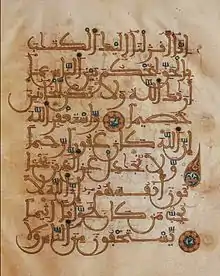 إنا أنزلنا إليك الكتب
بالحق لتحكم بين الناس بما
أريك الله ولا تكن للخائنين
خصيما واستغفر الله
إن الله كان غفورا رحيما
ولا تجدل عن الذين يختا
نون أنفسهم إن الله لا
يحب من كان خوانا أثيما
يستخفون من الناس